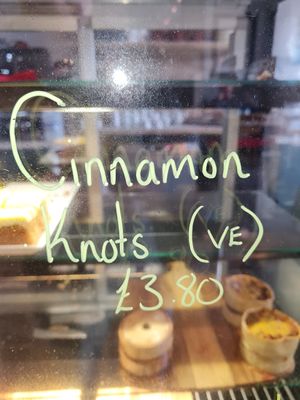 Cinnamon
Knots (VE)
£3.80